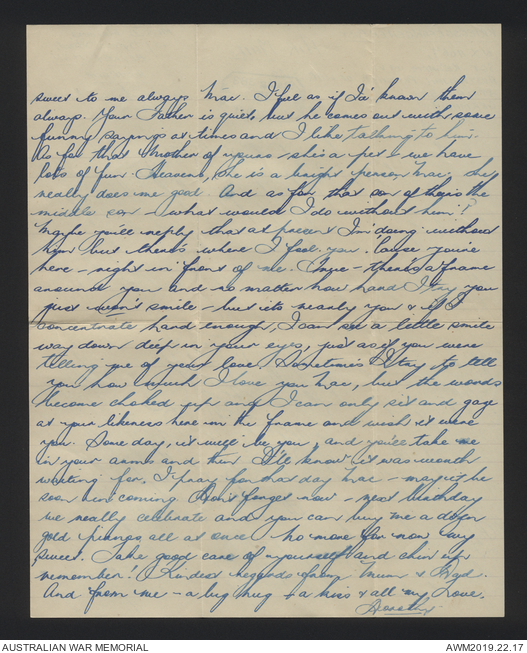 sweet to me always Mac. I feel as if I'd known them
always. Your Father is quiet, but he comes out with some
funny sayings at times and I like talking to him.
As for that Mother of yours - she's a pet - we have
lots of fun. Heavens, she is a bright person Mac, she
really does me good. And as for that son of theirs the
middle son - what would I do without him?
Maybe you'll reply that at present I'm doing without
him but thats where I fool you. 'Cause you're
here - right in front of me. - there's a frame
around you and no matter how hard I try you
just won't smile - but its nearly you & if I
concentrate hard enough, I can see a little smile
way down deep in your eyes, just as if you were
telling me of your love. Sometimes I try to tell
you how much I love you Mac, but the words
become choked up and I can only sit and gaze
at your likeness here in the frame and wish it were
you. Some day, it will be you, and you'll take me
in your arms and then I'll know it was worth
waiting for. I pray for that day Mac - may it be
soon in coming. Don't forget now - next birthday
we really celebrate and you can buy me a dozen
gold all at once. No more for now my
sweet. Take good care of yourself and chin up
remember! Kindest regards from Mum &
And from me - a big hug - a kiss & all my Love.
Dorothy
AUSTRALIAN WAR MEMORIAL
AWM2019.22.17